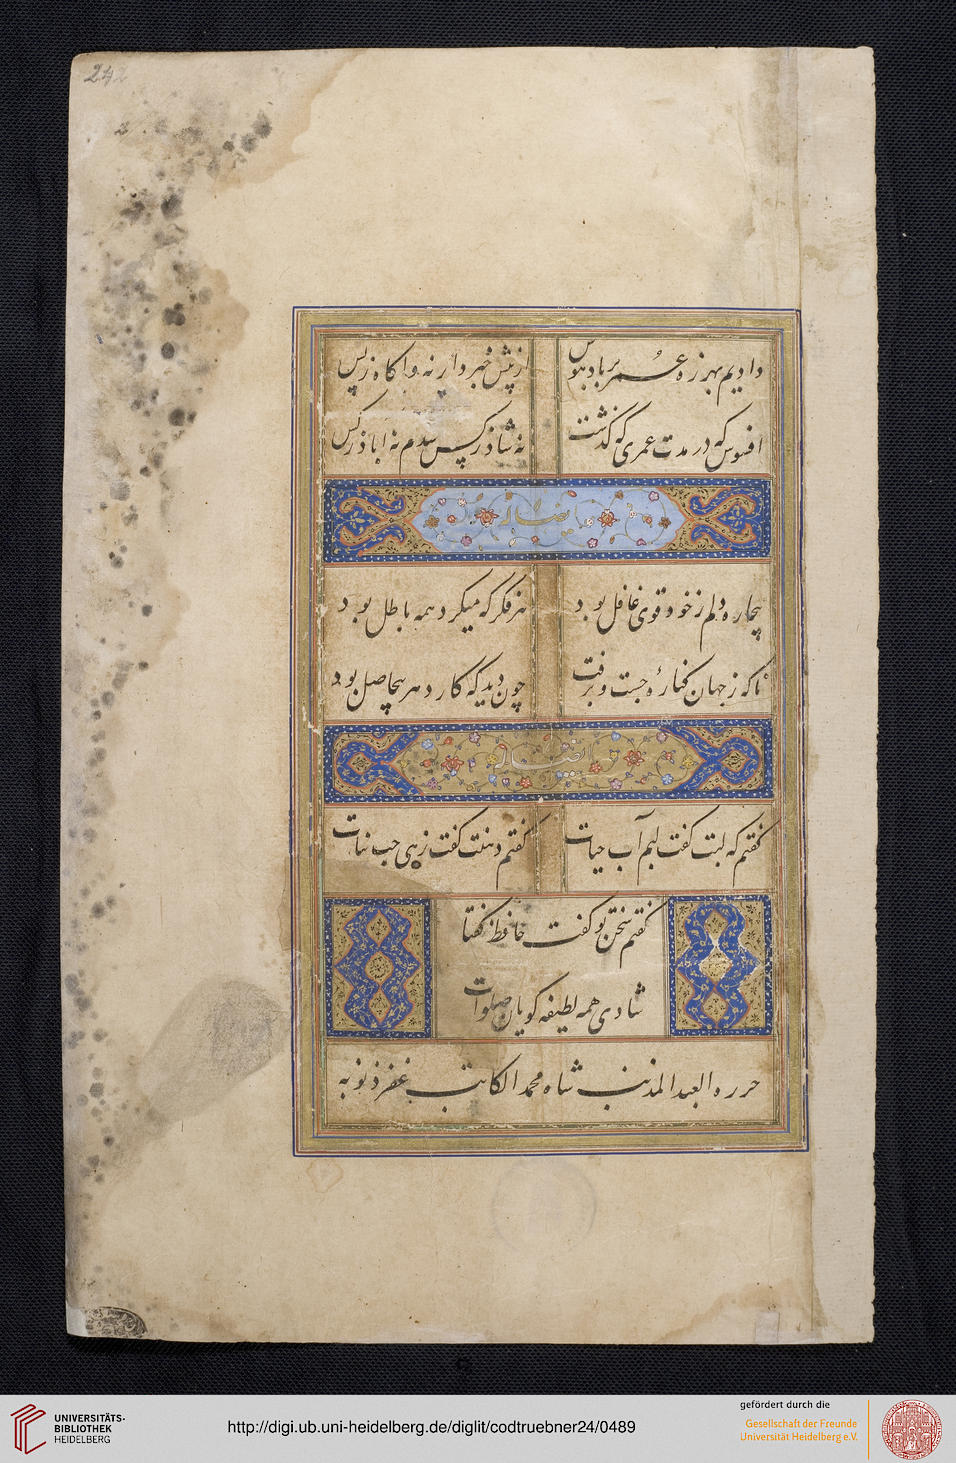 242
دادیم بهرزه عمر بر باد هوس
از پیش خبردار نه و آگاه ز پس
افسوس که در مدت عمری که گذشت
نه شاد ز کس شدم نه آباد ز کس
ایضا له
بیچاره دلم ز خود قوی غافل بود
هر فکر که میکرد همه باطل بود
تا که ز جهان کناره جست و برفت
چون دید که کار دهر بیحاصل بود
ایضا له
گفتم که لبت گفت لبم آب حیات
گفتم دهنت گفت زهی حب نبات
گفتم سخن تو گفت حافظ گفتا
شادی همه لطیفه گویان صلوات
حرره العبد المذنب شاه محمد الکاتب غفر ذنوبه
UNIVERSITÄTS-
BIBLIOTHEK
HEIDELBERG
http://digi.ub.uni-heidelberg.de/diglit/codtruebner24/0489
gefördert durch die
Gesellschaft der Freunde
Universität Heidelberg e.V.